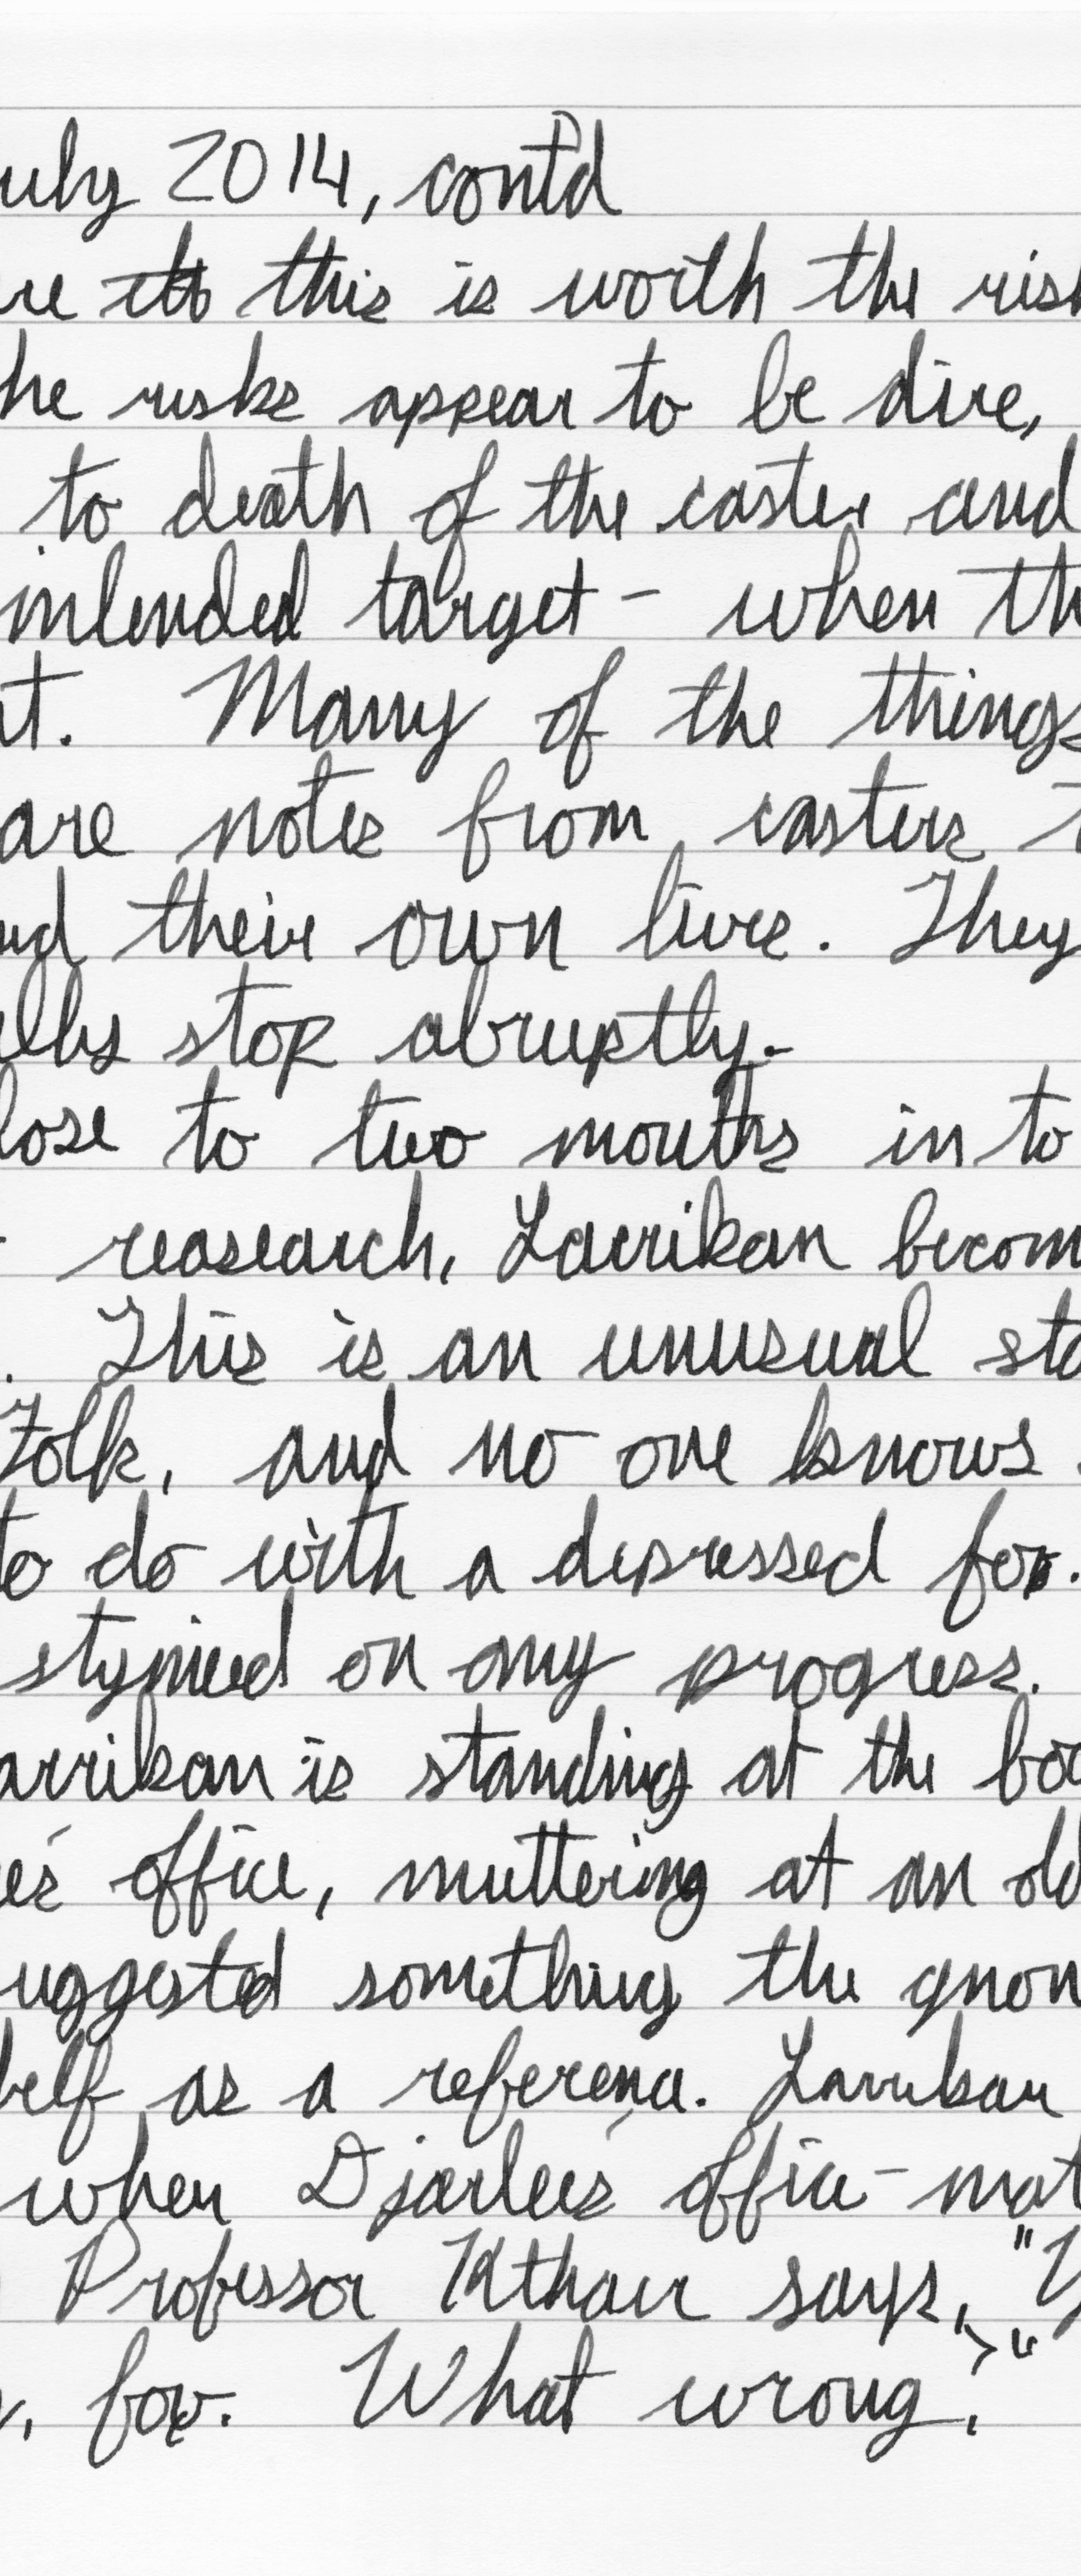 uly 2014, cont'd
re this is worth the risk
he risks appear to be dire,
to death of the caster and
intended target - when th
nt. Many of the things
are notes from casters
nd their own lives. They
ally stop abruptly.
lose to two months in to
reasearch, Larrikan becom
. This is an unusual sta
Folk, and no one knows
to do with a depressed fox.
stymied on my progress.
arrikan is standing at the boo
ee's office, muttering at an old
uggested something the gnom
helf as a reference. Larrikan
when Djarlee's office-mat
Professor Kthaur says, "Y
, fox. What wrong?"